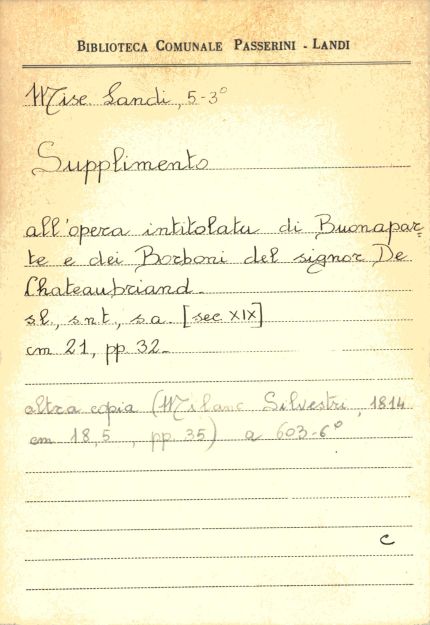 BIBLIOTECA COMUNALE PASSERINI - LANDI
Misc. Landi, 5-3°
Supplimento
all'opera intitolata di Buonapar=
te e dei Borboni del signor De
Chateaubriand.
s.l., s.n.t., s.a. [sec XIX]
cm 21, pp. 32.
altra copia (Milano Silvestri, 1814
cm 18,5, pp. 35) a 603-6°
C